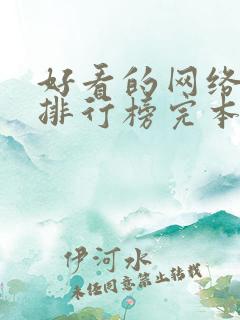 好看的网络
排行榜完本
伊河水
未经同意禁止转载